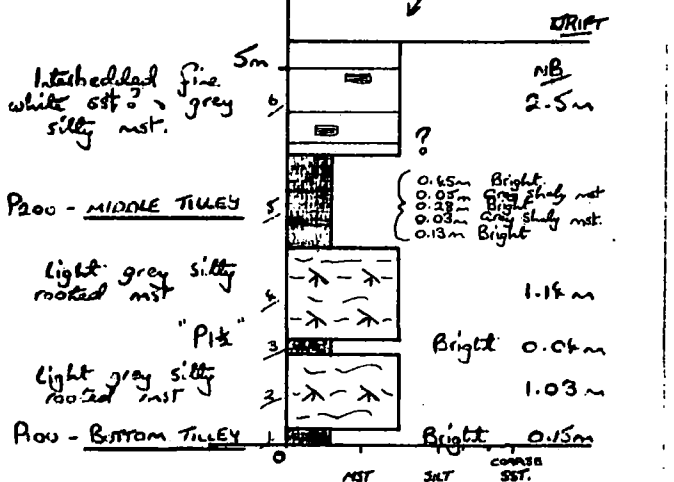 DRIFT
5m
NB
Interbedded fine
white sst? & grey
silty mst.
6
2.5m
?
0.45m Bright
0.05m Grey Shaly mst
0.28m Bright
0.03m Grey Shaly mst.
0.13m Bright
P200 - MIDDLE TILLEY
5
Light grey silty
rooted mst
4
1.14m
"P1½"
3
Bright 0.04m
Light grey silty
rooted mst
2
1.03m
P100 - BOTTOM TILLEY
1
Bright 0.15m
0
MST
SILT
COARSE
SST.